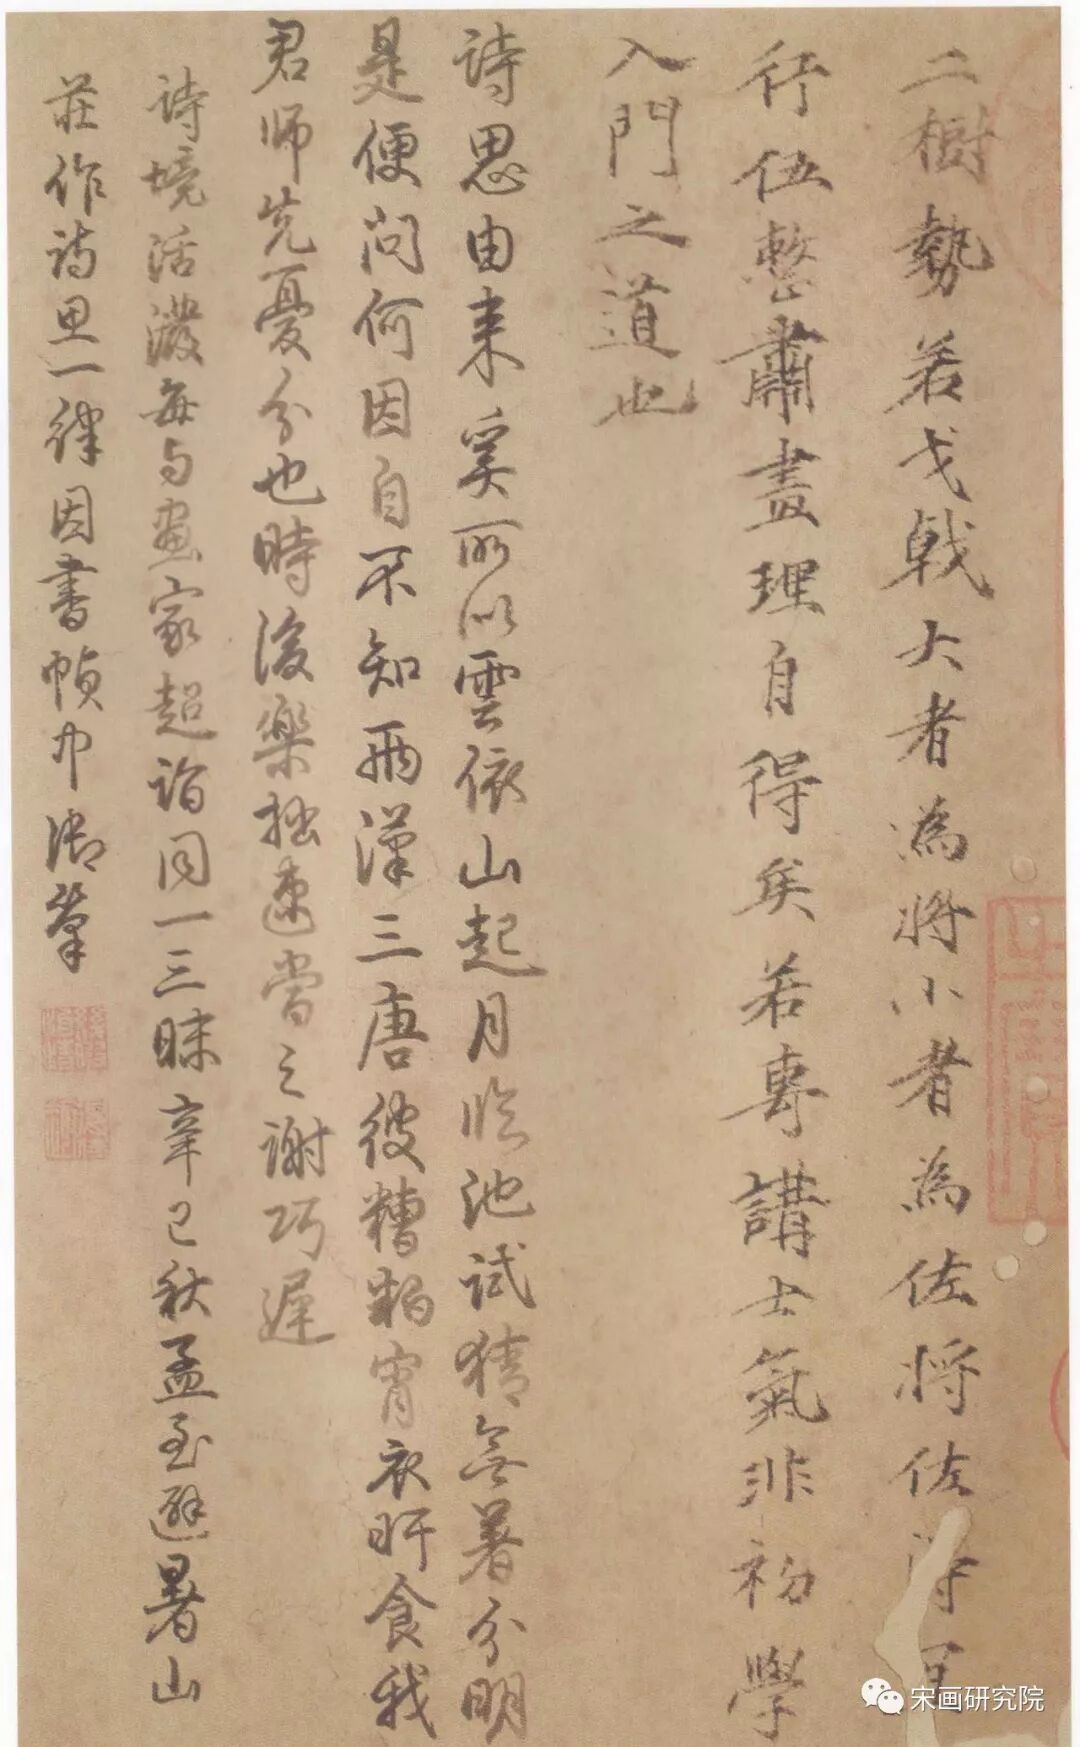 二樹勢若戈戟大者為將小者為佐將佐得宜
行伍整肅畫理自得矣若專講士氣非初學
入門之道也
詩思由来奚所以雲依山起月临池試猜無著分明
是便问何因自不知两漢三唐彼糟粕宵衣旰食我
君师先憂分也時後樂拙速當之謝巧遲
詩境活潑每与畫家超詣同一三昧辛巳秋孟至避暑山
莊作诗思一律因書幀中御筆
宋画研究院